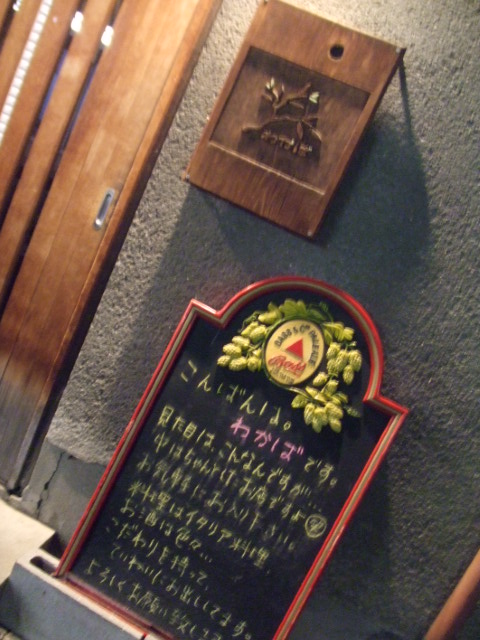 BASS & Co PALE ALE
Bass
こんばんは。
わかば です。
見た目はこんなんですが...
中はちゃんとお店ですよ
お気軽にお入り下さい。
料理はイタリア料理。
お酒は色々...
こだわりを持って
ていねいにお出ししてます。
よろしくお願い致してます。